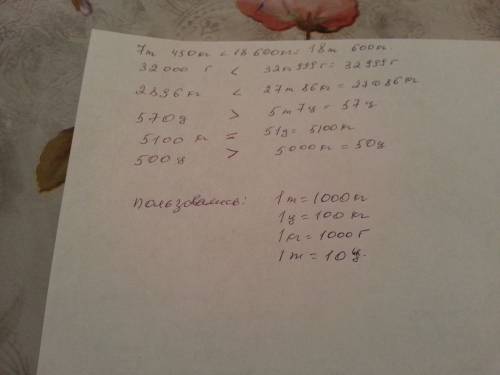 7т 450кг < 18 600кг = 18т 600кг.
32000 г < 32кг 999г = 32999г
2896кг < 27т 86кг = 27086кг
570ц > 5т7ц = 57ц
5100 кг = 51ц = 5100кг
500ц > 5000кг = 50ц
пользовались: 1т = 1000кг
1ц = 100 кг
1кг = 1000 г
1т = 10ц.